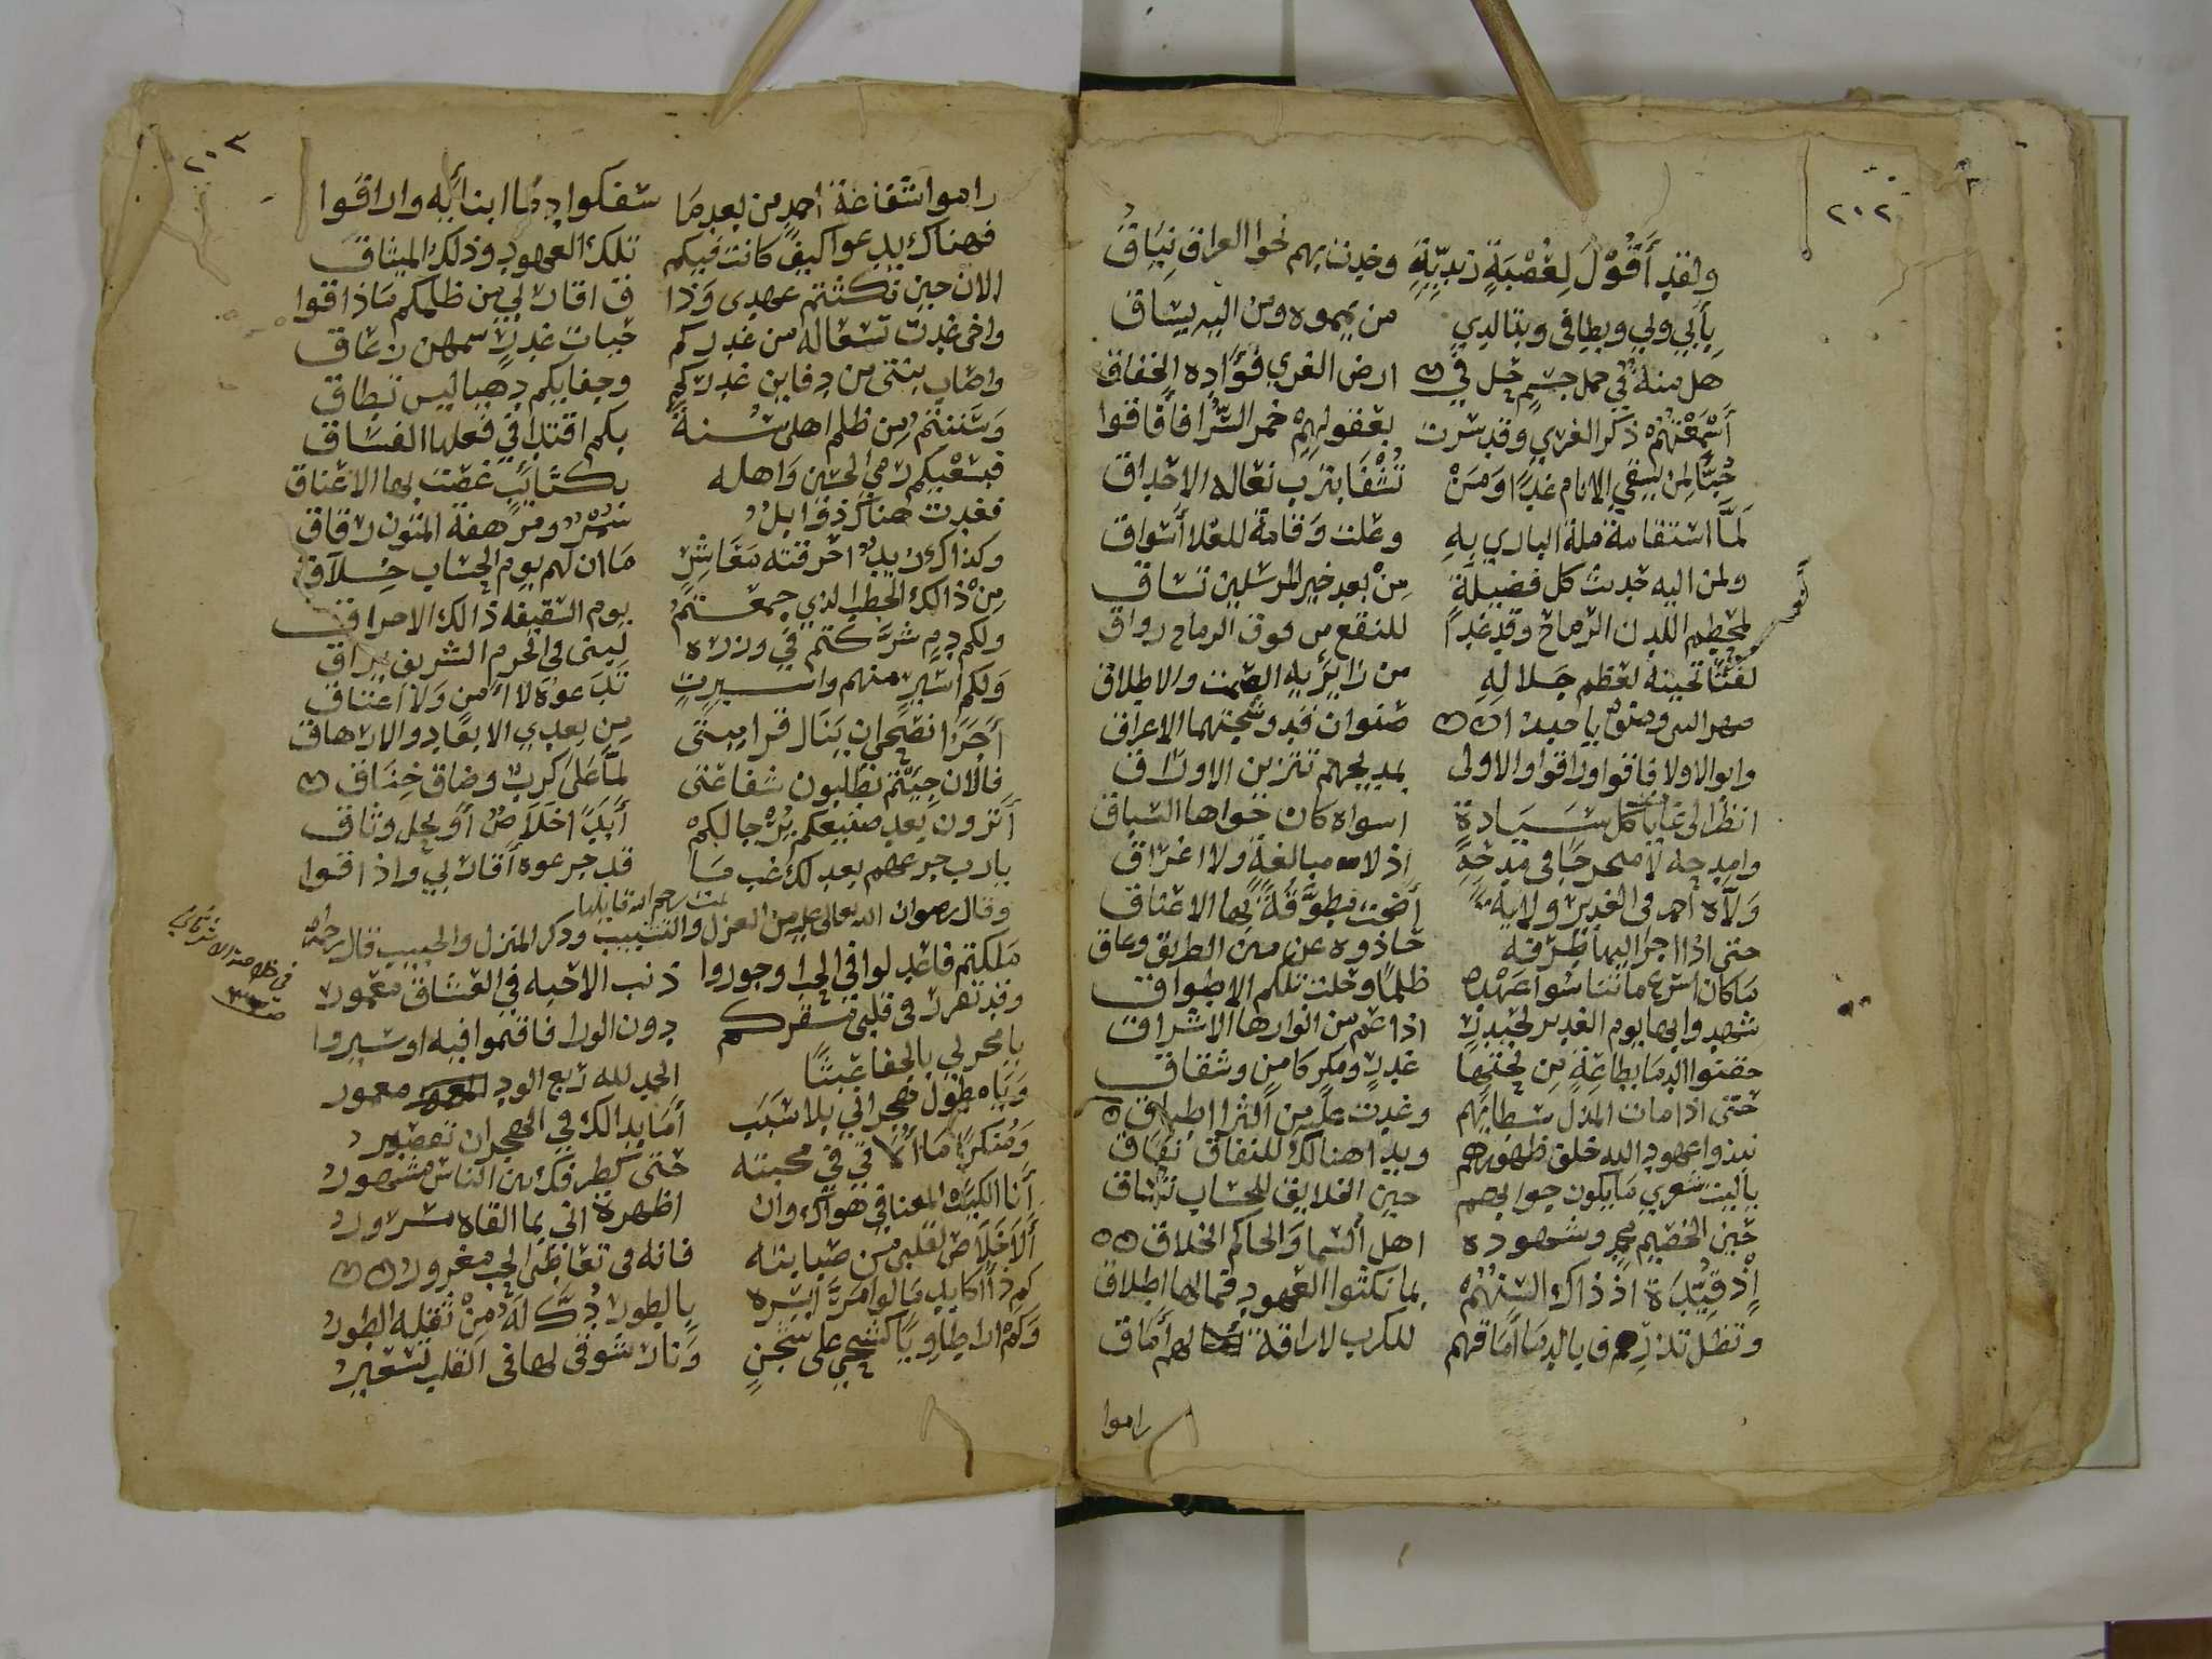 ٢٠٢
ولقد أَقُوْلُ لِعُصْبَةٍ زيديّةٍ وخدت بهم نحو العراق نِيَاقُ
بِأَبِي وبي وبطارفى وبتالدي من يمموه ومن اليه يساق
هل منة في حمل جسم حل في ارض الغري فؤاده الخفاق
أَسْمَعْتُهُمْ ذكر الغري وقد سرت بعقولهم خمر السُّرا فأفاقوا
حُبًّا لمن يسقي الانام غدًا وَمَنْ تُشْفَا بترب نعاله الاحداق
لَمَّا استقامة ملة الباري بهِ وعلت وقامة للعلا أسواق
ولمن اليه حديث كل فضيلة مِنْ بعد خير المرسلين تساق
لمحطم اللدن الرماح وقد غدا للنقع من فوق الرماح رواق
لفتًا تحيته لعظم جلالهِ من زائريه الصمت والاطلاق
صهر النبي وصنوه يا حبذا صنوان قد وشجتهما الاعراق
وابو الاولا فاقوا وراقوا والاولى بمديحهم تتزين الاوراق
انظر الى غايات كل سيادة اسواه كان جوادها السباق
وامدحه لا متحرجًا في مدحه اذ لا مبالغة ولا اغراق
ولّاه احمد في الغدير ولاية أضحت مطوقة بها الاعناق
حتى اذا اجرا اليها طرفه حادوه عن سنن الطريق وعاق
ما كان اسرع ما تناسوا عهده ظلمًا وحلت تلكم الاطواق
شهدوا بها يوم الغدير لحيدر اذ عم من انوارها الاشراق
حقنوا الدما بطاعة من تحتها غدر ومكر كامن وشقاق
حتى اذا مات المذل سطابهم وغدت عليه من الثرا اطباق
نبذوا عهود الله خلف ظهورهم وبدا هنالك للنفاق نفاق
يا ليت شعري ما يكون جوابهم حين الخلايق للحساب تساق
حين الخصيم محمد وشهوده اهل السما والحاكم الخلاق
إذ قيدة اذ ذاك السنهم بما نكثوا العهود فما لها اطلاق
وتظل تذرف بالدما أماقهم للكرب لا راقة لهم أماق
راموا
٢٠٣
راموا شفاعة احمد من بعد ما سفكوا دما ابنائه واراقوا
فهناك يدعوا كيف كانت فيكم تلك العهود وذلك الميثاق
الان حين نكثتم عهدى وذا ق اقاربي من ظلمكم ما ذاقوا
واخى غدت تسعا له من غدركم حيات غدر سمهن زعاق
واصاب بنتى من دفاين غدركم وجفايكم دهيا ليس تطاق
وسننتم من ظلم اهلى سنة بكم اقتدا في فعلها الفساق
فبسعيكم رمي الحسين واهله بكتائب غصت بها الاعناق
فغدت هناك ذوابل سمر ومرهفة المتون رقاق
وكذاك زيد احرقته معاشر ما ان لهم يوم الحساب خلاق
من ذالك الحطب الذي جمعتم يوم السقيفه ذالك الاحراق
ولكم دم شركتم في وزره لبنى فى الحرم الشريف يراق
ولكم اسير منهم واسيرت تدعوه لا امن ولا اعتاق
أجزا نصحى ان ينال قرابتى من بعدي الابعاد والارهاق
فالان جئتم تطلبون شفاعتى لما علا كرب وضاق خناق
أترون بعد صنيعكم يرجا لكم أبدًا خلاص أو يحل وثاق
يا رب جرعهم بعدلك غب ما قد جرعوه أقاربي واذاقوا
تمت رحم الله قايلها
وقال رضوان الله تعالى عليه من الغزل والتشبيب وذكر المنزل والحبيب قال رحمه الله
ملكتم فاعدلوا في الحب او جوروا ذنب الاحبه في العشاق مغفور
وقد تقرر فى قلبى مقركم دون الورا فاقيموا فيه او سيروا
يا مخربي بالجفا عبثًا الحمد لله ربع الود معمور
ويا مطول هجراني بلا سبب أما بدا لك في الهجران تقصير
ومنكرًا ما ألاقي في محبته حتى كطرفك بين الناس مشهور
أنا الكئيب المعنا في هواك وان اظهرة انى بما القاه مسرور
ألا خلاص لقلبى من صبابته فانه فى تعاطى الحب مغرور
كم ذا اكابد ما لو مر ايسره بالطور دك له من ثقله الطور
وكم اداطاوي يا كشحي على شجن ونار شوقى لها فى القلب تسعير